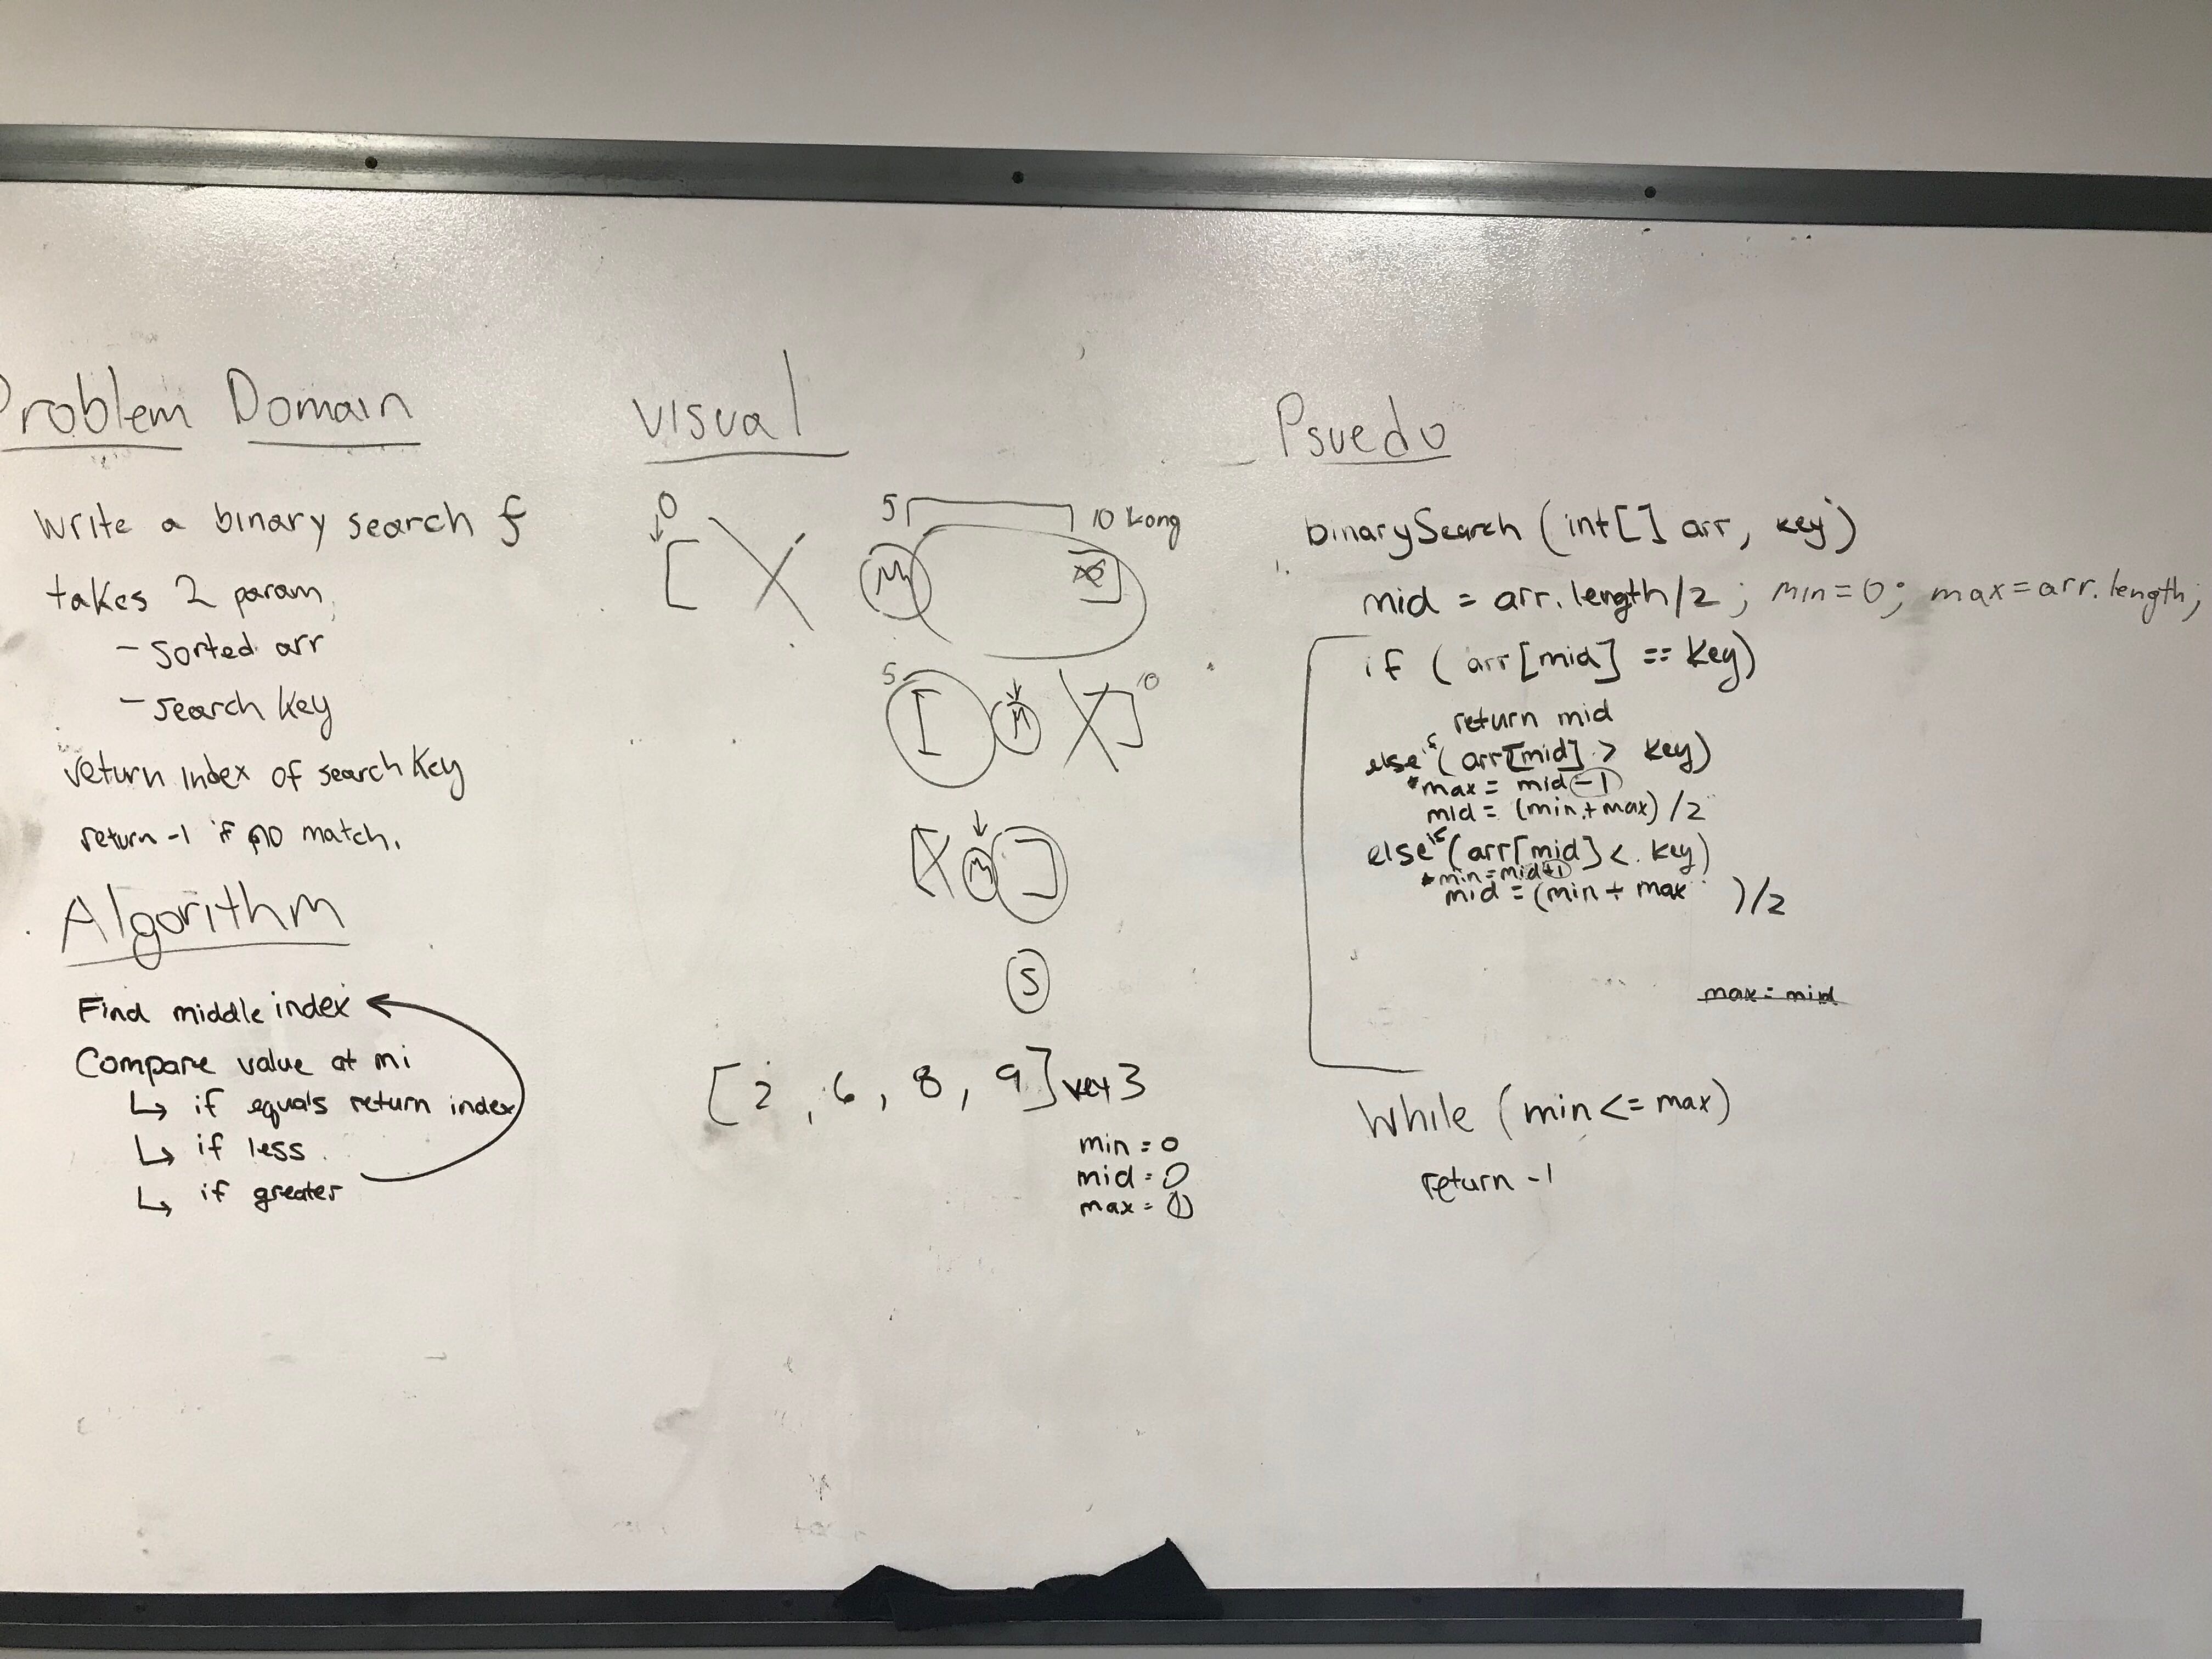 Problem Domain
Write a binary search f
takes 2 param
- Sorted arr
- Search Key
return index of search Key
return -1 if no match.
Algorithm
Find middle index
Compare value at mi
↳ if equals return index
↳ if less
↳ if greater
Visual
0
5
10 Kong
[ X M ]
5
10
[ M X ]
[ X M ]
5
[ 2 , 6 , 8 , 9 ] key 3
min = 0
mid = 0
max = 0
Psuedo
binarySearch (int[] arr, key)
mid = arr.length/2 ; min=0; max=arr.length;
if ( arr[mid] == Key)
return mid
else if (arr[mid] > Key)
*max = mid -1
mid = (min + max) /2
else if (arr[mid] < Key)
*min = mid+1
mid = (min + max )/2
max = mid
While (min <= max)
return -1